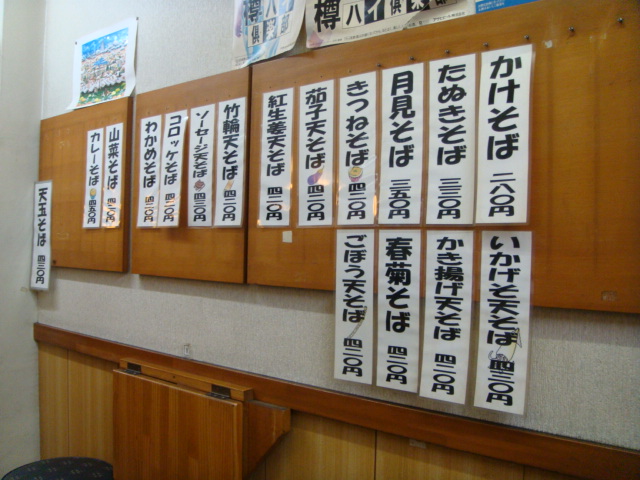 樽ハイ倶楽部
かけそば 二八〇円
たぬきそば 三三〇円
月見そば 三五〇円
きつねそば 四二〇円
茄子天そば 四二〇円
紅生姜天そば 四二〇円
竹輪天そば 四二〇円
ソーセージ天そば 四二〇円
コロッケそば 四二〇円
わかめそば 四二〇円
山菜そば
カレーそば 四五〇円
いかげそ天そば 四三〇円
かき揚げ天そば 四二〇円
春菊そば 四二〇円
ごぼう天そば 四二〇円
天玉そば 四三〇円